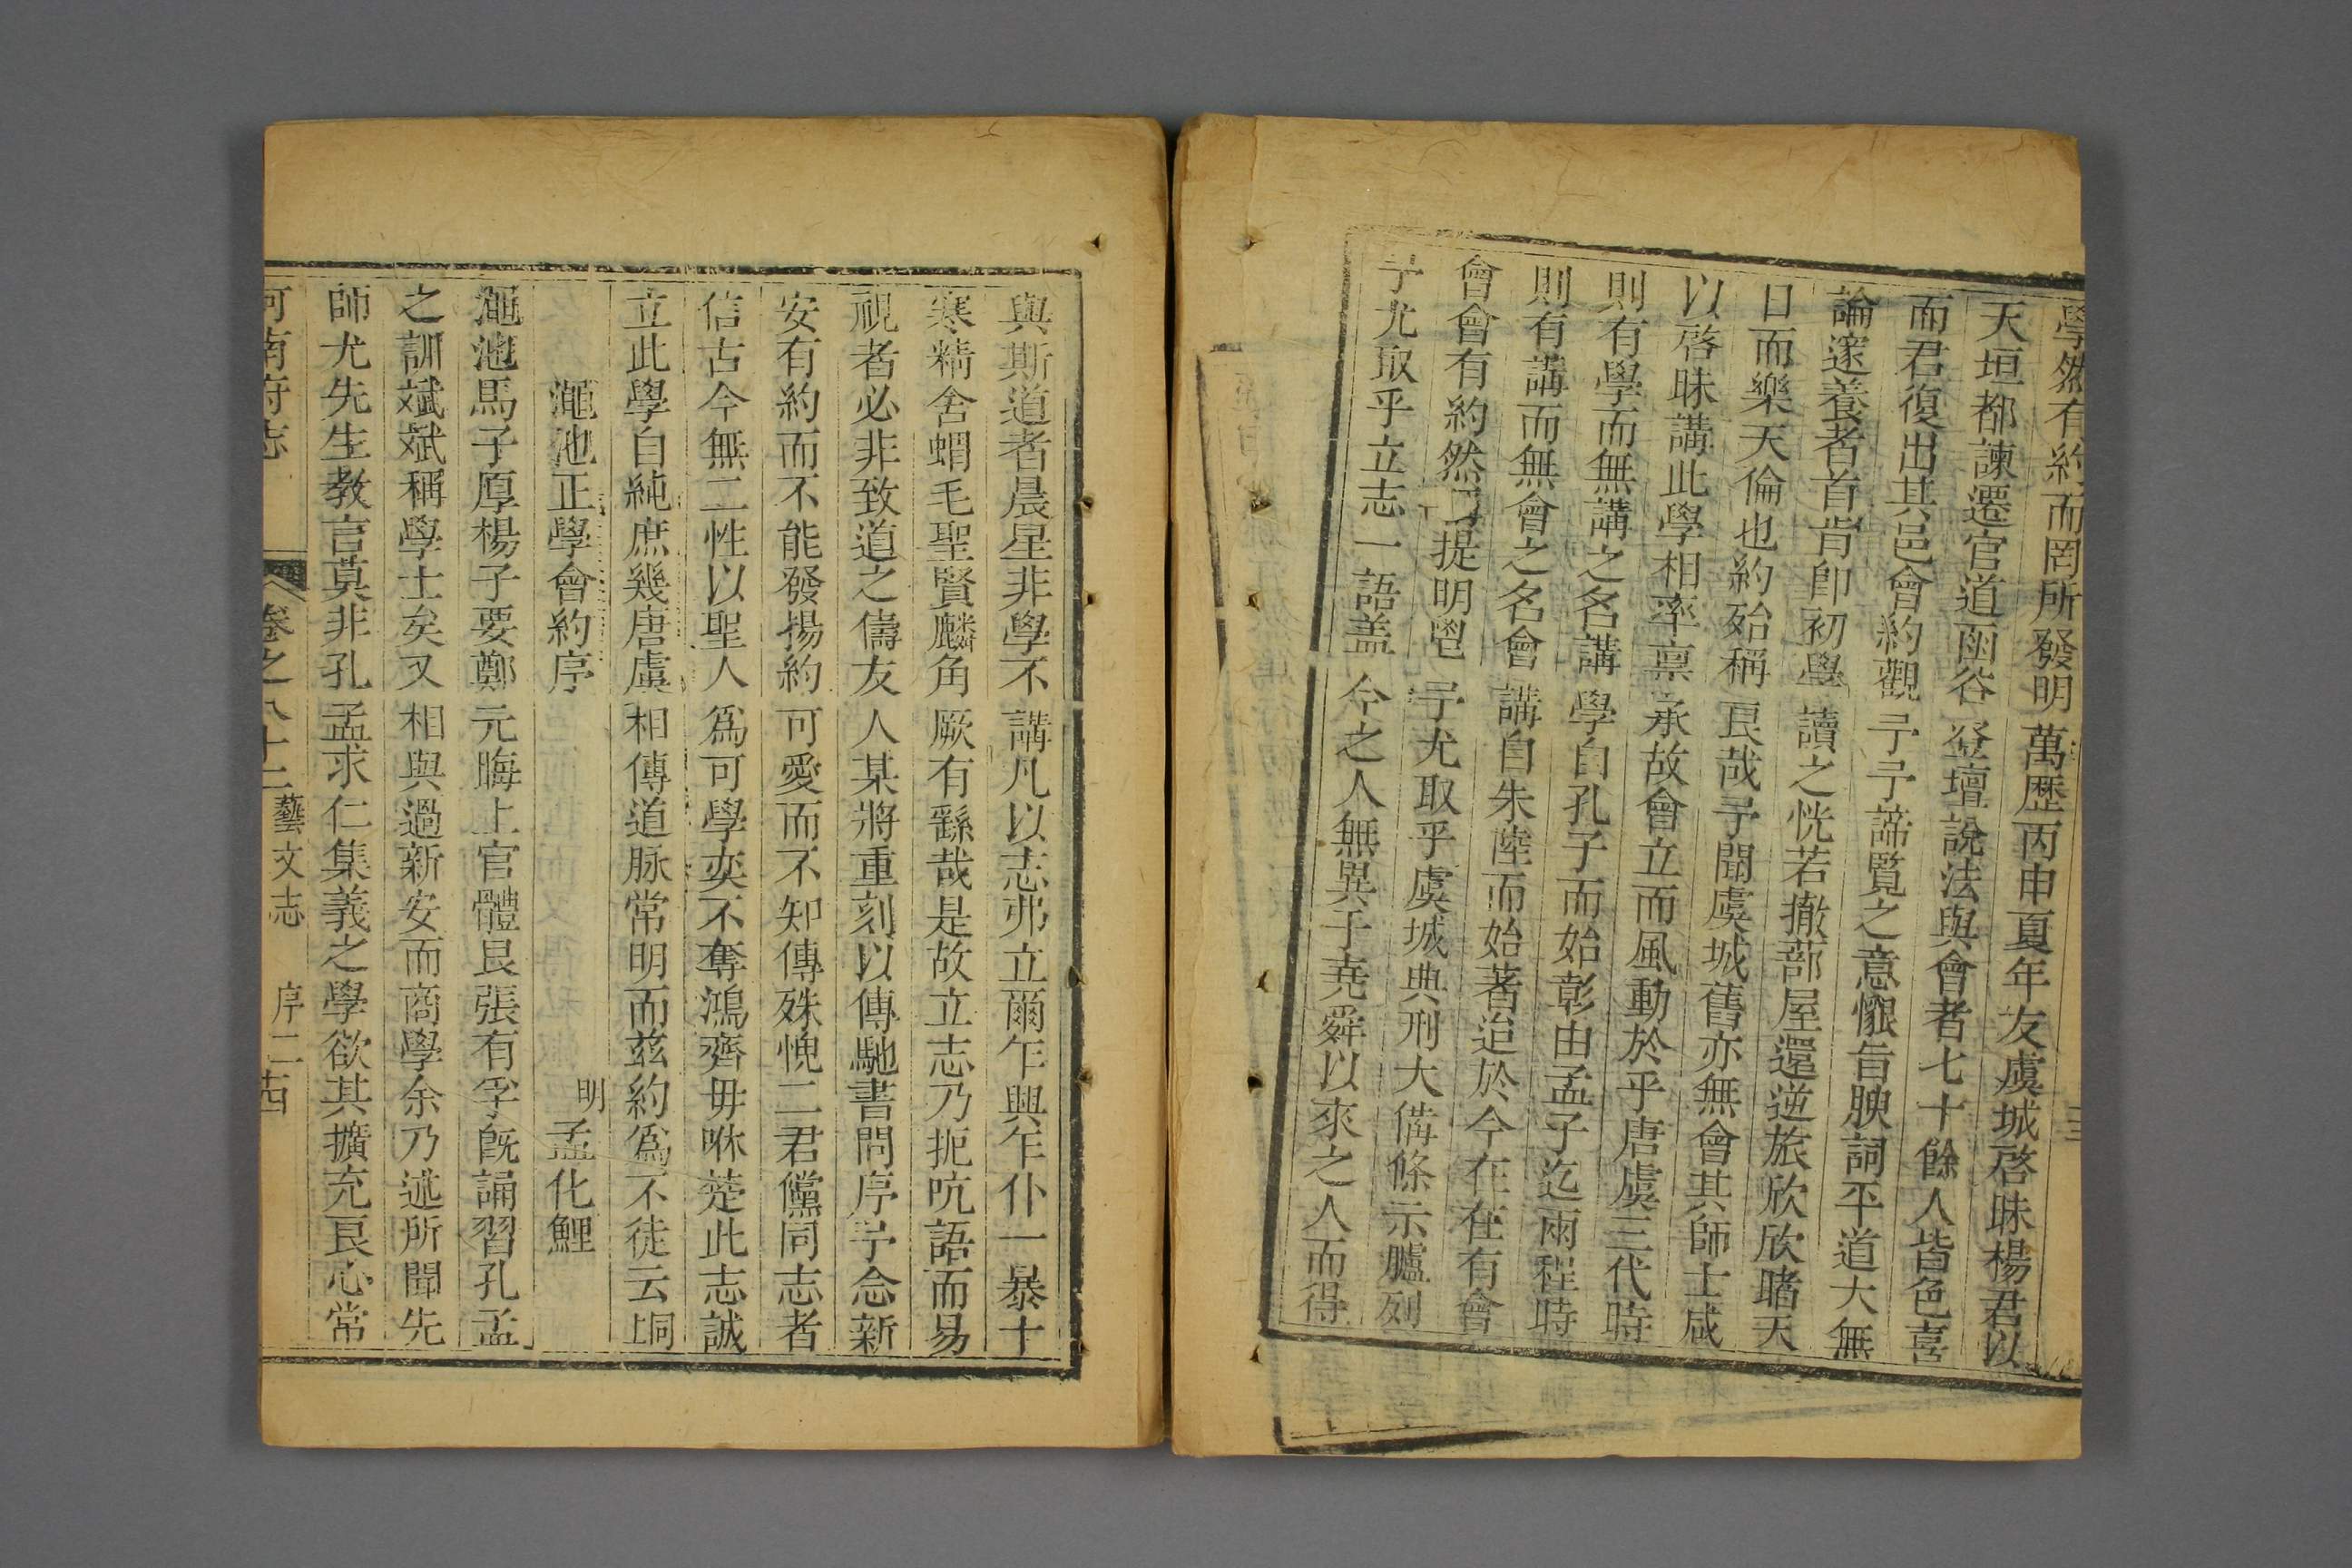 學然有約而罔所發明萬歷丙申夏年友虞城啓昧楊君以
天垣都諫遷官道函谷登壇說法與會者七十餘人皆色喜
而君復出其邑會約觀予予諦覽之意懇旨腴詞平道大無
論邃養者首肯即初學讀之恍若撤蔀屋還逆旅欣欣睹天
日而樂天倫也約始稱良哉予聞虞城舊亦無會其師士咸
以啓昧講此學相率稟承故會立而風動於乎唐虞三代時
則有學而無講之名講學自孔子而始彰由孟子迄兩程時
則有講而無會之名會講自朱陸而始著迨於今在在有會
會會有約然提明鬯予尤取乎虞城典刑大備條示臚列
予尤取乎立志一語蓋今之人無異于堯舜以來之人而得
與斯道者晨星非學不講凡以志弗立爾乍興乍仆一暴十
寒精舍蝟毛聖賢麟角厥有繇哉是故立志乃扼吭語而易
視者必非致道之儔友人某將重刻以傳馳書問序予念新
安有約而不能發揚約可愛而不知傳殊愧二君儻同志者
信古今無二性以聖人爲可學奕不奪鴻齊毋咻楚此志誠
立此學自純庶幾唐虞相傳道脉常明而兹約爲不徒云 同上
澠池正學會約序 明 孟化鯉
澠池馬子厚楊子要鄭元晦上官體良張有孚旣誦習孔孟
之訓斌斌稱學士矣又相與過新安而商學余乃述所聞先
師尤先生教言莫非孔孟求仁集義之學欲其擴充良心常
河南府志 卷之八十二 藝文志 序二 四